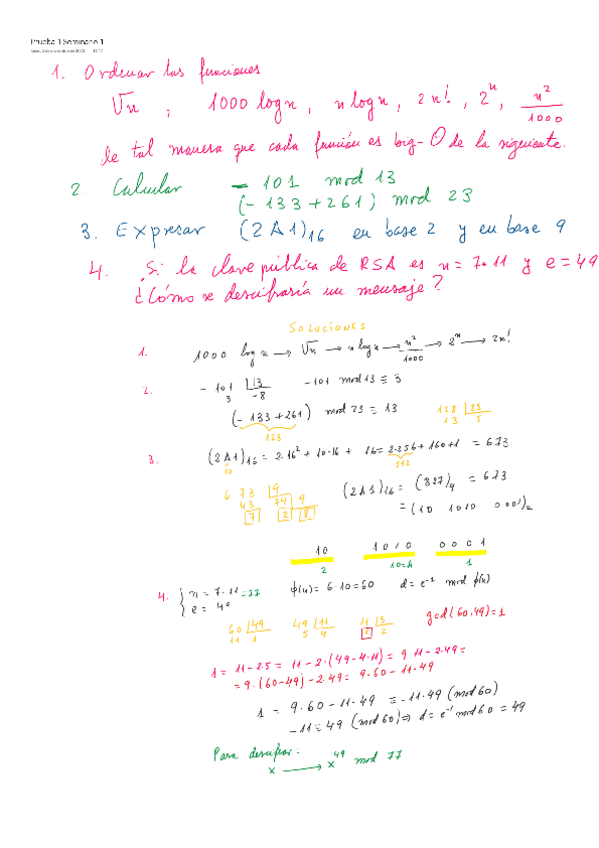 Prueba 1 Seminario 1
1. Ordenar las funciones
√n , 1000 log n , n log n , 2n! , 2^n , n²/1000
de tal manera que cada función es big-O de la siguiente.
2. Calcular - 101 mod 13
(-133+261) mod 23
3. Expresar (2A1)₁₆ en base 2 y en base 9
4. Si la clave pública de RSA es n=7·11 y e=49
¿Cómo se descifraría un mensaje?
SOLUCIONES
1. 1000 log n → √n → n log n → n²/1000 → 2^n → 2n!
2. -101 |13 -101 mod 13 ≡ 3
3 -8
(-133+261) mod 23 = 13 128 |23
128 13 5
3. (2A1)₁₆ = 2·16² + 10·16 + 1 = 2·256 + 160+1 = 673
10 512
6 73 |9 (2A1)₁₆ = (827)₉ = 673
43 74 |9 = (10 1010 0001)₂
7 2 8
10 1010 0001
2 10=A 1
4. { n = 7·11 = 77 ϕ(n) = 6·10=60 d = e⁻¹ mod ϕ(n)
e = 49
60 |49 49 |11 11 |5 gcd(60,49)=1
11 1 5 4 1 2
1 = 11-2·5 = 11-2·(49-4·11) = 9·11-2·49=
= 9·(60-49)-2·49 = 9·60-11·49
1 = 9·60-11·49 ≡ -11·49 (mod 60)
-11 ≡ 49 (mod 60) ⇒ d = e⁻¹ mod 60 = 49
Para descifrar:
x → x⁴⁹ mod 77